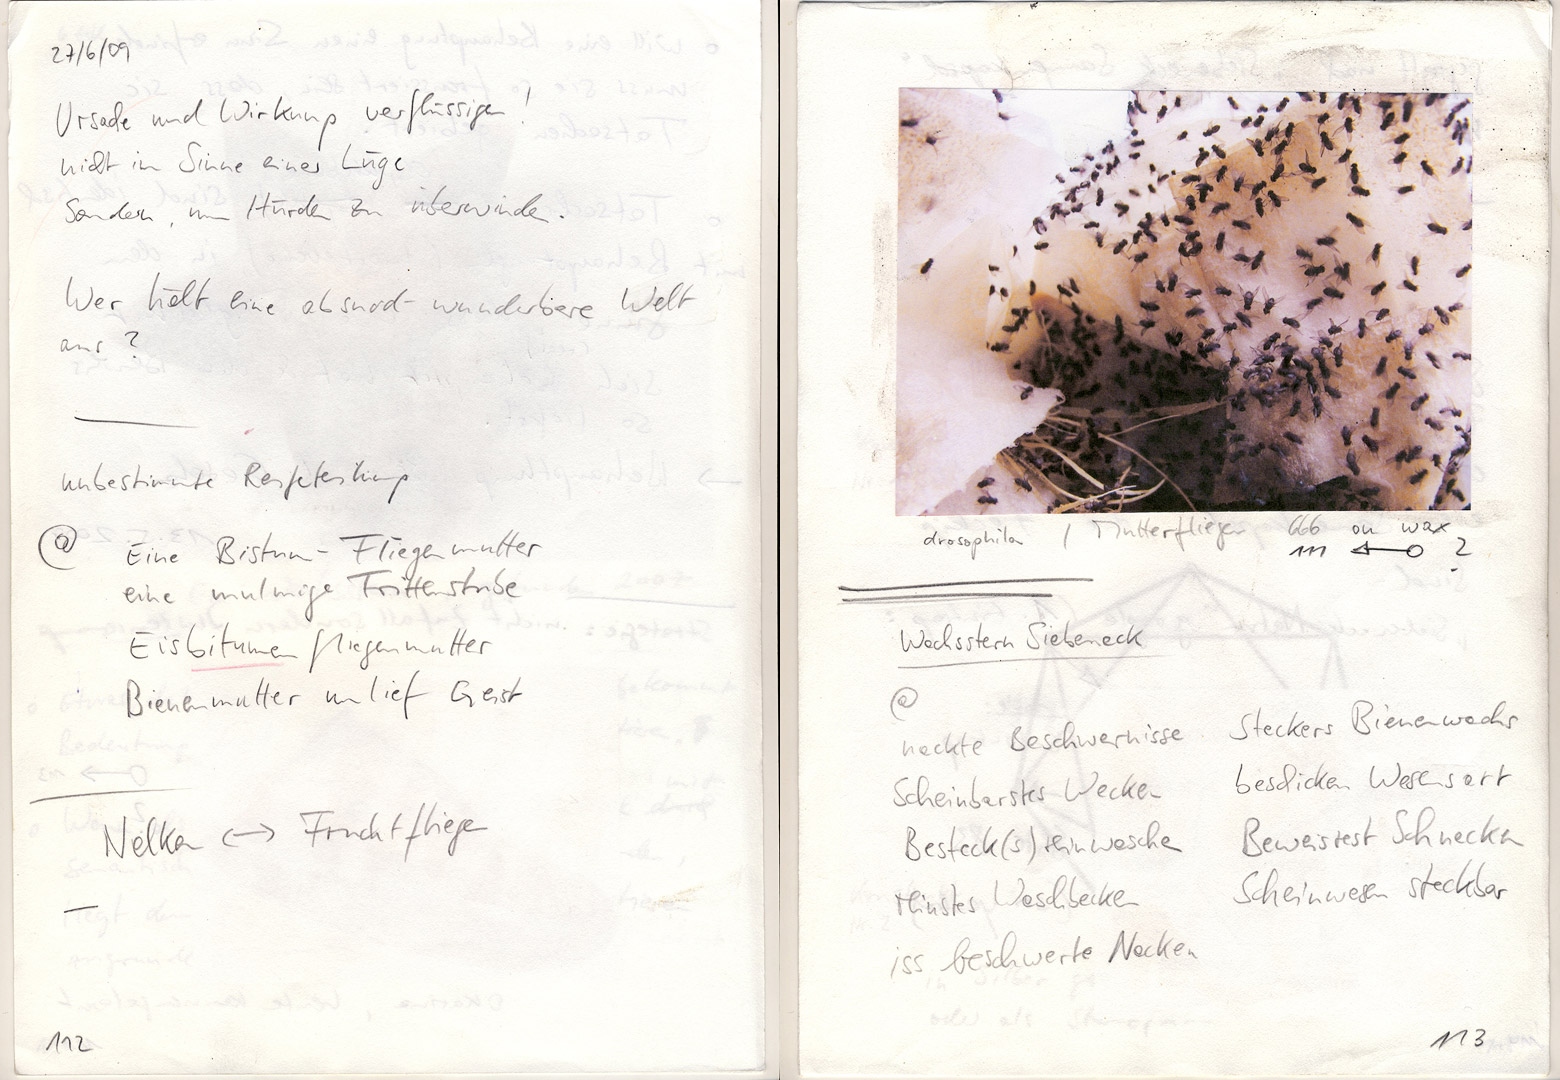 27/6/09
Ursache und Wirkung verflüssigen!
nicht im Sinne einer Lüge
Sondern, um Hürden zu überwinden.
Wer hält eine absurd-wunderbare Welt
aus?
unbestimmte
@
Eine Bistum-Fliegenmutter
eine mulmige
Eisbitumen fliegenmutter
Bienenmutter umlief Geist
Nelken <-> Fruchtfliegen
112
drosophila / Mutterfliegen 666 on wax
?
Wachsstern Siebeneck
@
nackte Beschwernisse
Scheinbarstes Wecken
Besteck(s) reinwaschen
reinstes Waschbecken
iss beschwerte Nacken
Steckers Bienenwachs
beschicken Wesensart
Beweistest Schnecken
Scheinwesen steckbar
113